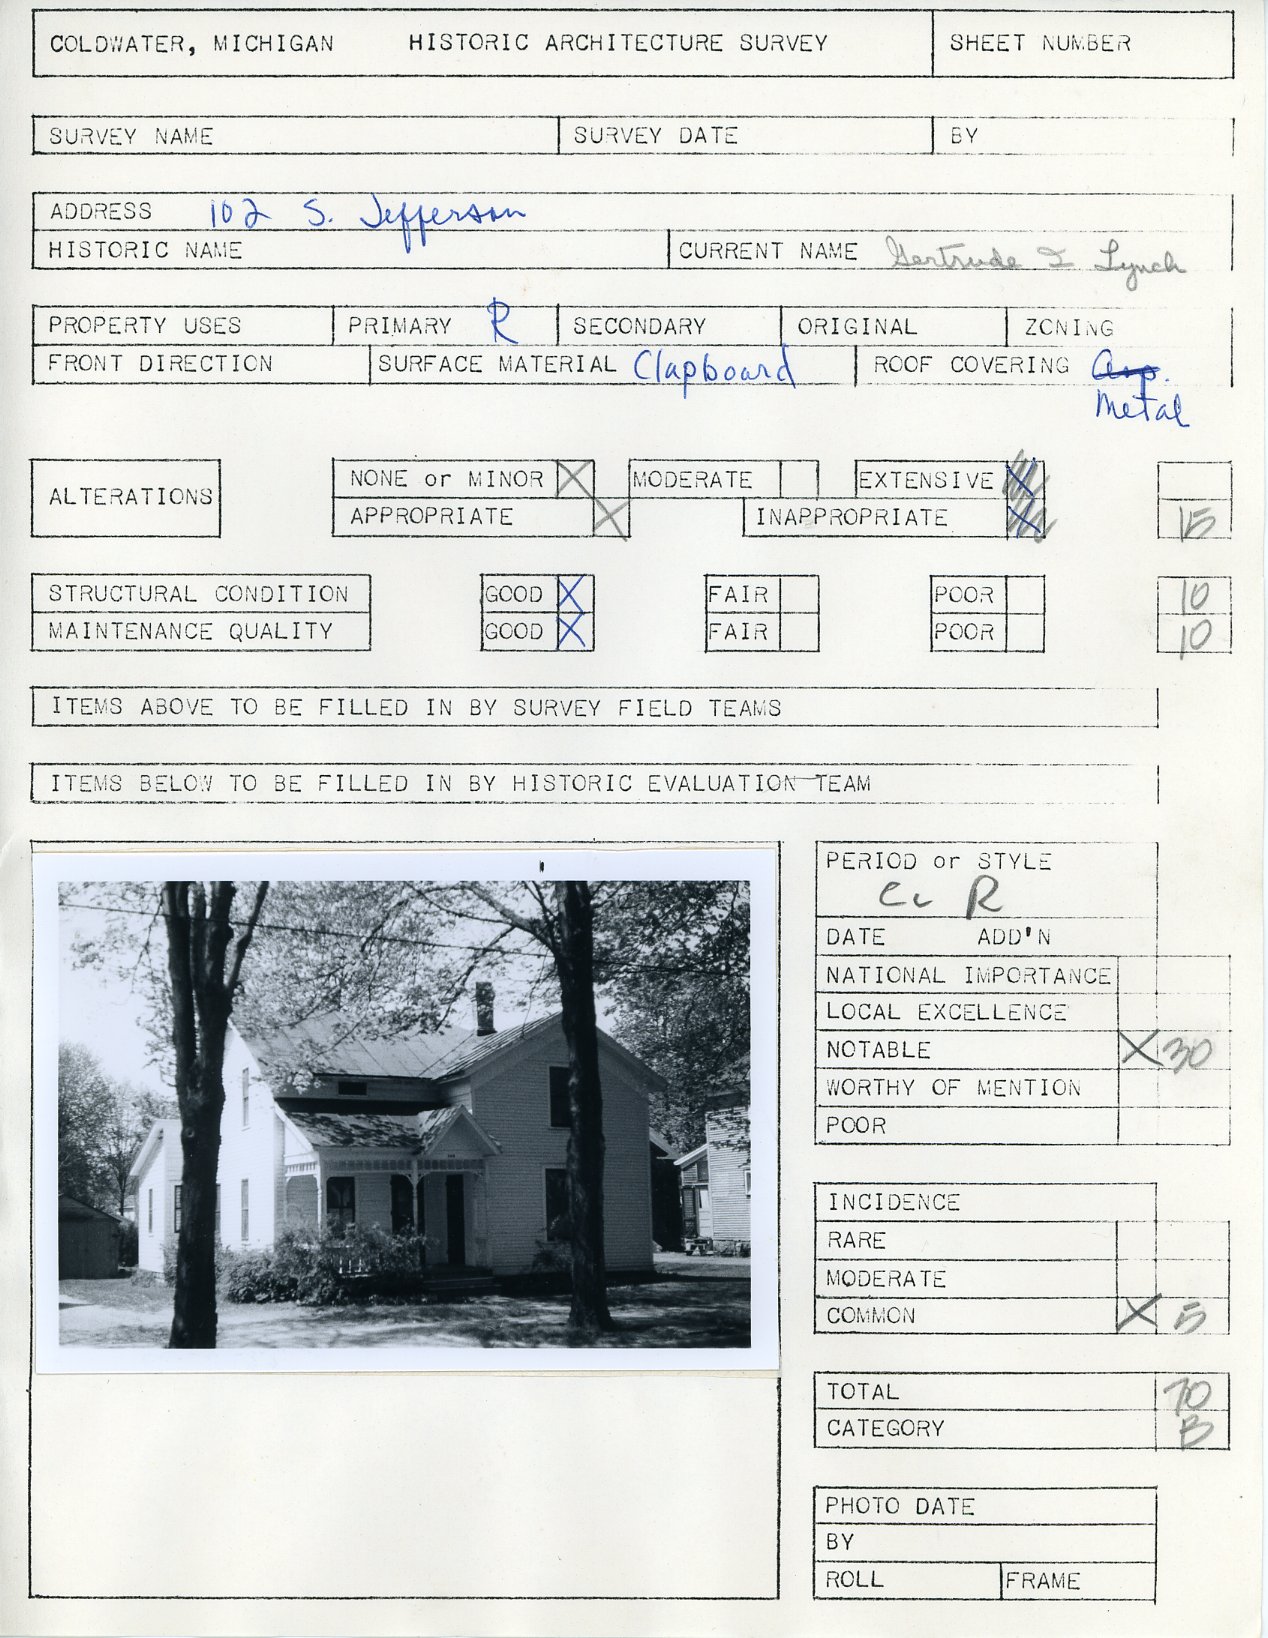 COLDWATER, MICHIGAN HISTORIC ARCHITECTURE SURVEY SHEET NUMBER
SURVEY NAME SURVEY DATE BY
ADDRESS 102 S. Jefferson
HISTORIC NAME CURRENT NAME Gertrude I Lynch
PROPERTY USES PRIMARY R SECONDARY ORIGINAL ZONING
FRONT DIRECTION SURFACE MATERIAL Clapboard ROOF COVERING Asp.
Metal
ALTERATIONS NONE or MINOR X MODERATE EXTENSIVE X
APPROPRIATE X INAPPROPRIATE X 15
STRUCTURAL CONDITION GOOD X FAIR POOR 10
MAINTENANCE QUALITY GOOD X FAIR POOR 10
ITEMS ABOVE TO BE FILLED IN BY SURVEY FIELD TEAMS
ITEMS BELOW TO BE FILLED IN BY HISTORIC EVALUATION TEAM
PERIOD or STYLE
R
DATE ADD'N
NATIONAL IMPORTANCE
LOCAL EXCELLENCE
NOTABLE X 30
WORTHY OF MENTION
POOR
INCIDENCE
RARE
MODERATE
COMMON X 5
TOTAL 70
CATEGORY B
PHOTO DATE
BY
ROLL FRAME